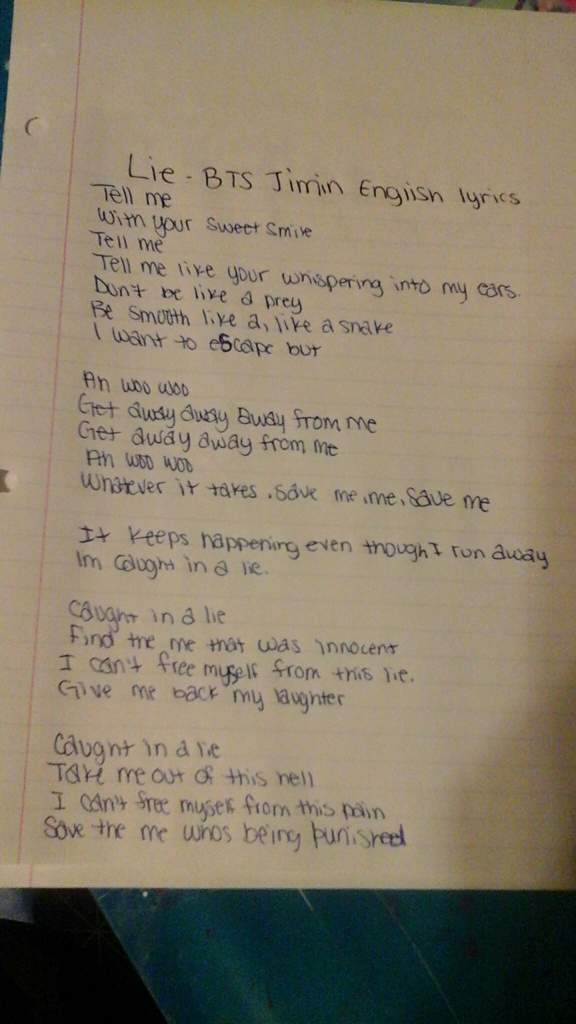 Lie - BTS Jimin English lyrics
Tell me
With your sweet smile
Tell me
Tell me like your whispering into my ears.
Don't be like a prey
Be smooth like a, like a snake
I want to escape but
Ah woo woo
Get away away away from me
Get away away from me
Ah woo woo
Whatever it takes, save me, me, save me
It keeps happening even though I run away
Im caught in a lie.
Caught in a lie
Find the me that was innocent
I can't free myself from this lie.
Give me back my laughter
Caught in a lie
Take me out of this hell
I can't free myself from this pain
Save the me whos being punished